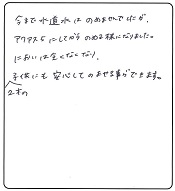 今まで水道水はのめませんでしたが、
アクアスGにしてからのめる様になりました。
においは全くなくなり、
子供にも安心してのませる事ができます。
2才の